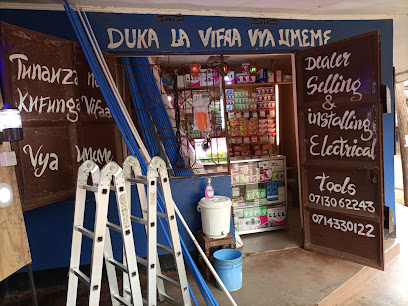 DUKA LA VIFAA VYA UMEME
Tunauza na
kufunga Vifaa
Vya Umeme
Dealer
Selling
&
installing
Electrical
Tools
0713062243
0714330122